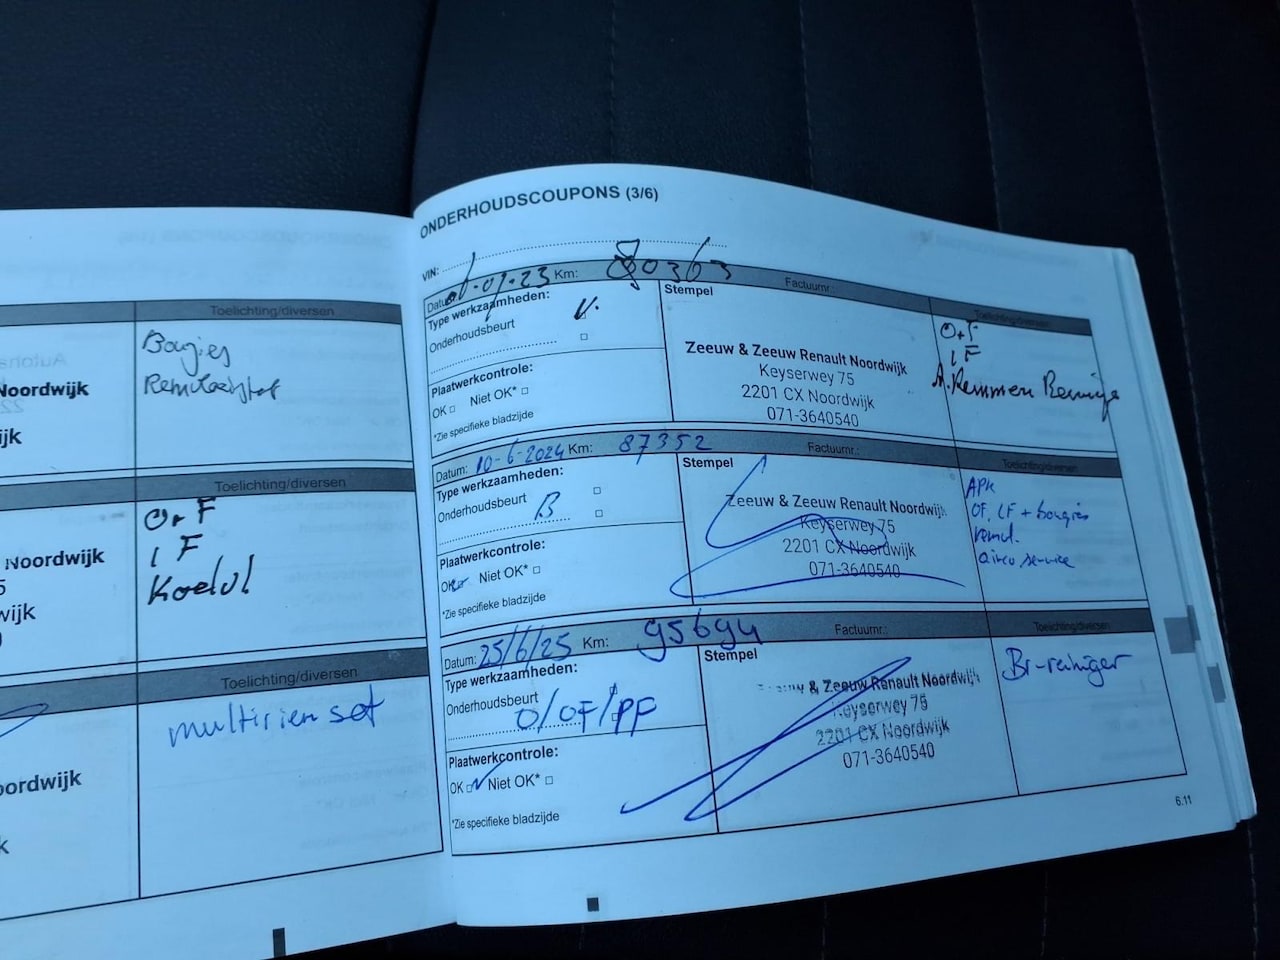 Toelichting/diversen
Bougies
Remvloeistof
Noordwijk
ijk
Toelichting/diversen
O+F
IF
Koelvl
Noordwijk
5
wijk
Toelichting/diversen
multiriem set
oordwijk
k
ONDERHOUDSCOUPONS (3/6)
VIN:
Datum: Km: 80363 Factuurnr.:
Type werkzaamheden:
Onderhoudsbeurt
Stempel
Toelichting/diversen
O+F
IF
A. Remmen Reinigen
Zeeuw & Zeeuw Renault Noordwijk
Keyserwey 75
2201 CX Noordwijk
071-3640540
Plaatwerkcontrole:
OK Niet OK*
*Zie specifieke bladzijde
Datum: 10-6-2024 Km: 87352 Factuurnr.:
Type werkzaamheden:
Onderhoudsbeurt B
Stempel
Toelichting/diversen
APK
OF, LF + bougies
remvl.
Airco service
Zeeuw & Zeeuw Renault Noordwijk
Keyserwey 75
2201 CX Noordwijk
071-3640540
Plaatwerkcontrole:
OK Niet OK*
*Zie specifieke bladzijde
Datum: 25/6/25 Km: 95694 Factuurnr.:
Type werkzaamheden:
Onderhoudsbeurt
O/OF/PF
Stempel
Toelichting/diversen
Br-reiniger
& Zeeuw Renault Noordwijk
Keyserwey 75
2201 CX Noordwijk
071-3640540
Plaatwerkcontrole:
OK Niet OK*
*Zie specifieke bladzijde
6.11